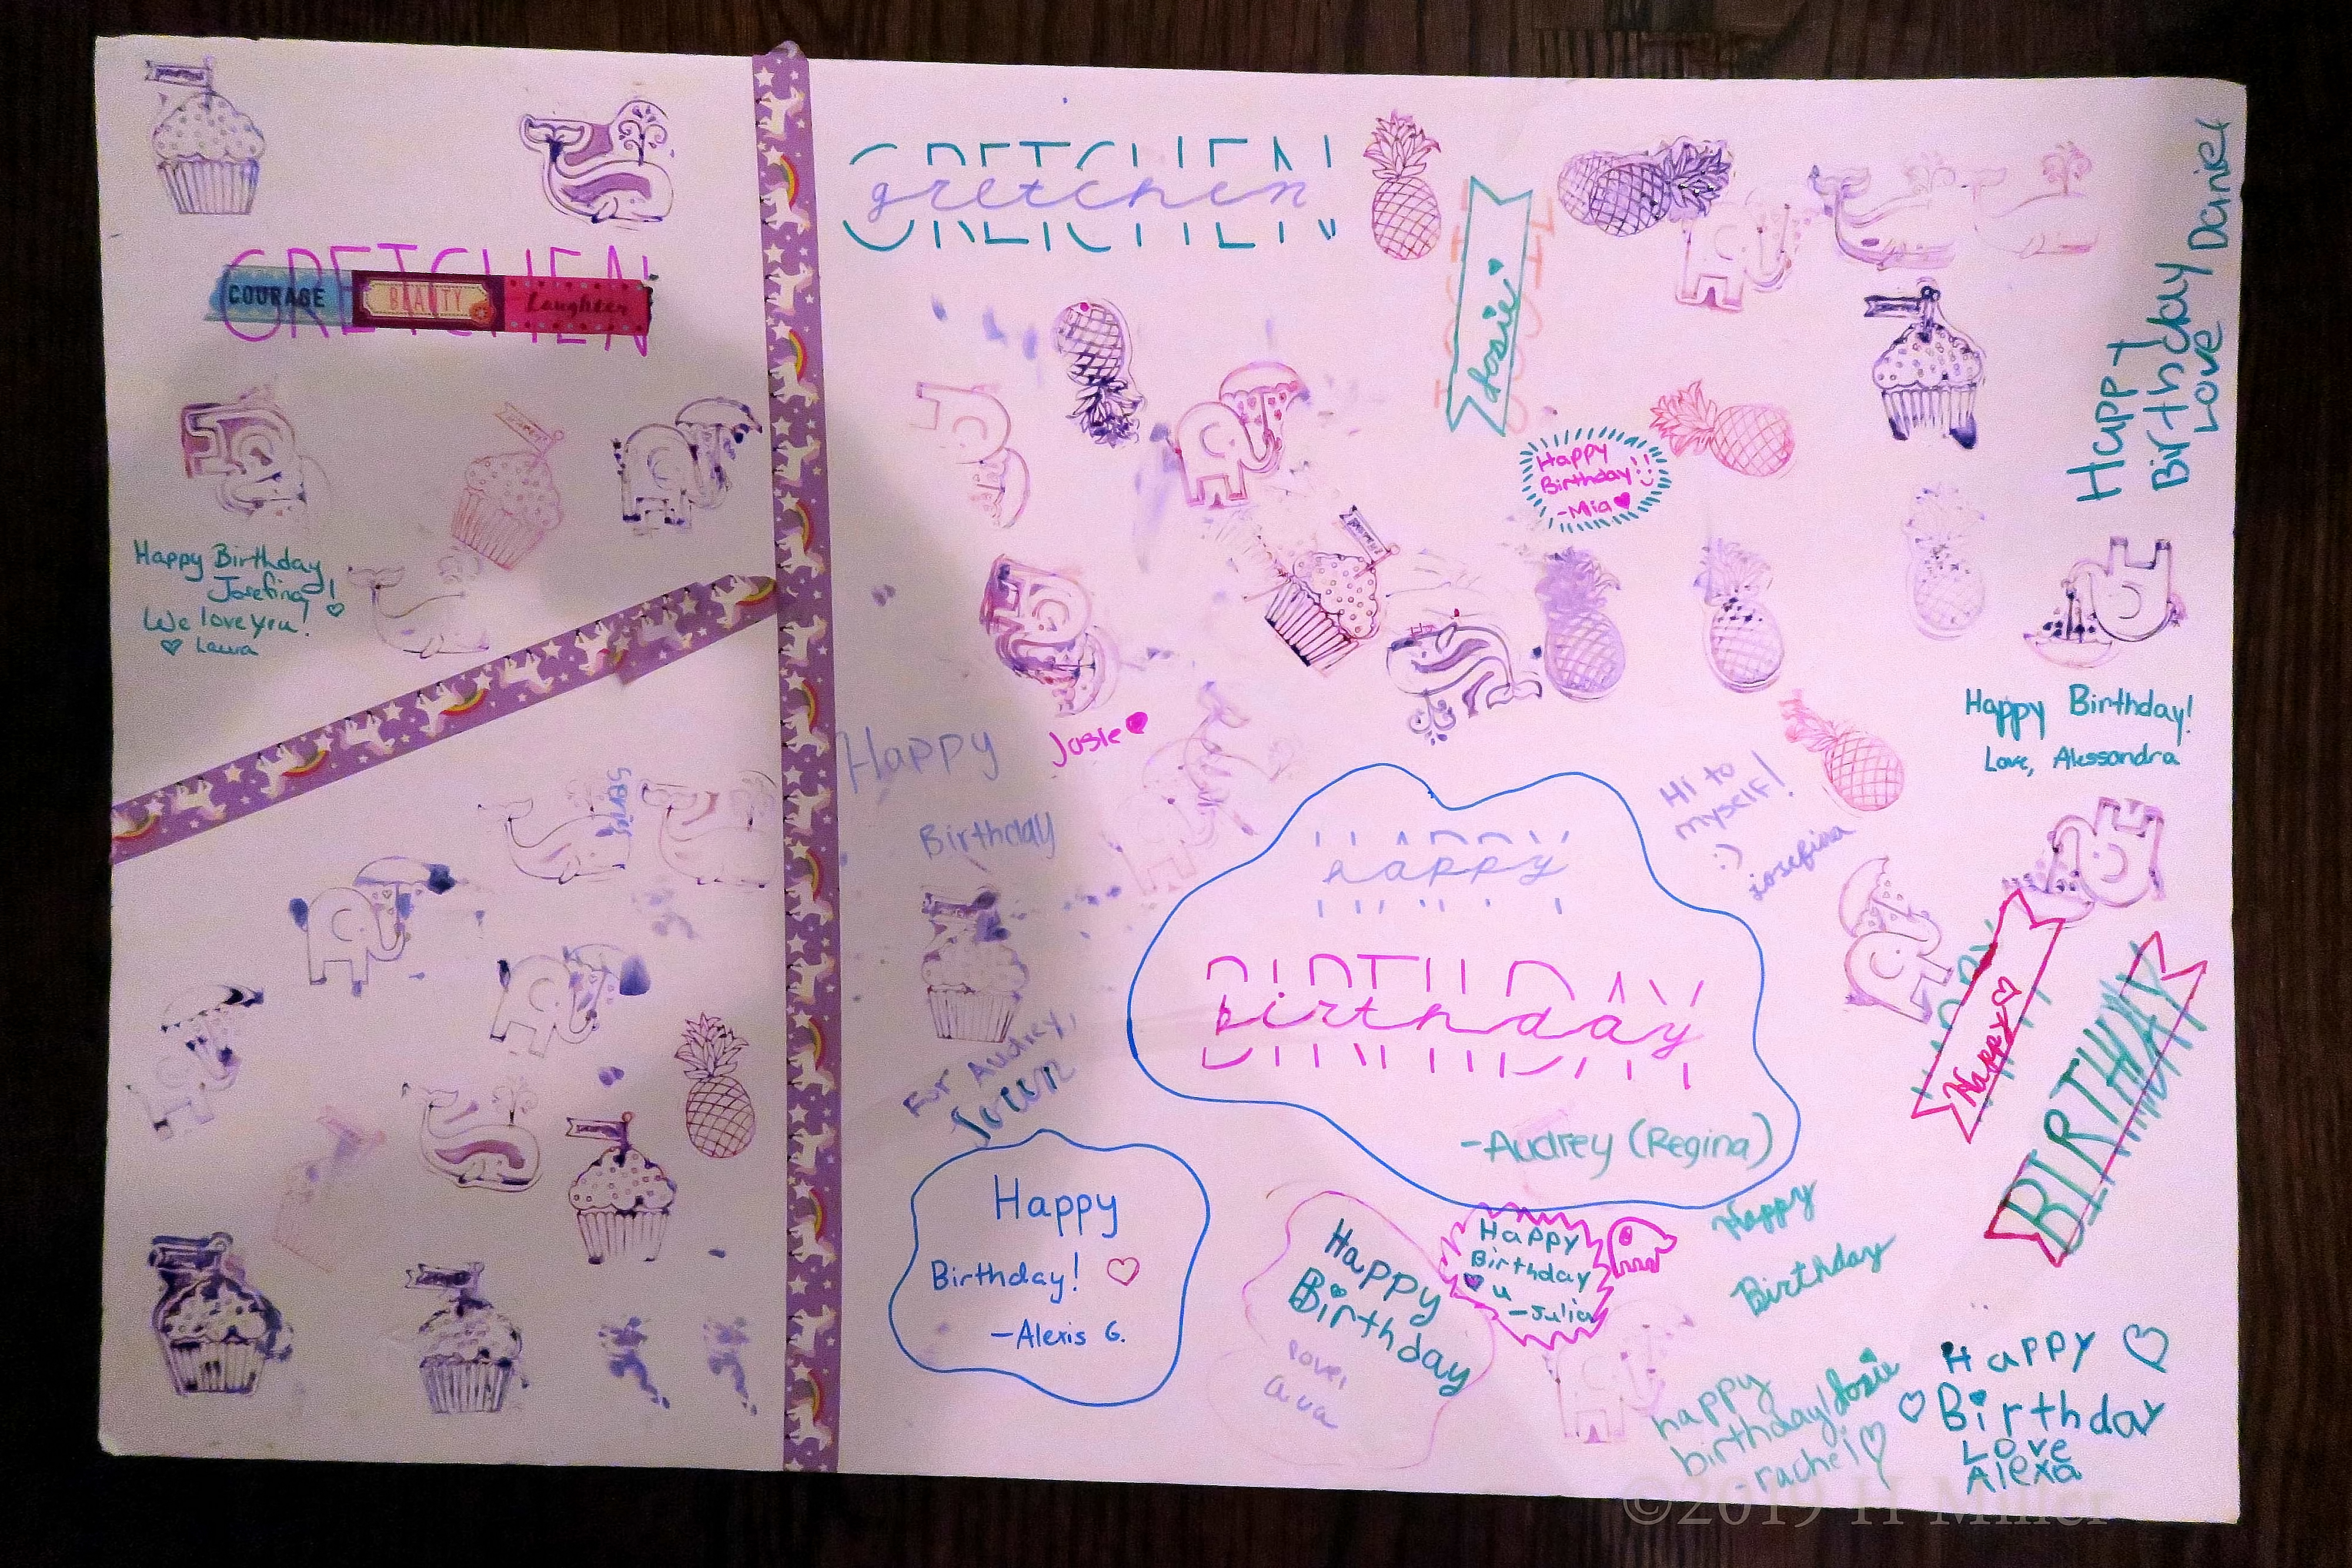 GRETCHEN
COURAGE BEAUTY Laughter
Happy Birthday
Josefina!
We love you!
Laura
GRETCHEN
gretchen
Josie
Happy
Birthday
Love Daniel
Happy
Birthday!
-Mia
Josie
Happy
Birthday
For Audrey,
Happy Birthday!
Love, Alessandra
Hi to
myself!
:)
josefina
happy
BIRTHDAY
birthday
-Audrey (Regina)
Happy
BIRTHDAY
Happy
Birthday!
-Alexis G.
Happy
Birthday
love,
ava
Happy
Birthday
u
-Julia
Happy
Birthday
Josie
happy
birthday!
-rachel
Happy
Birthday
Love
Alexa
©2019 H Miller